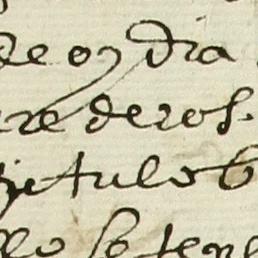 de oy dia
rederos.
titulo b
llo se ten